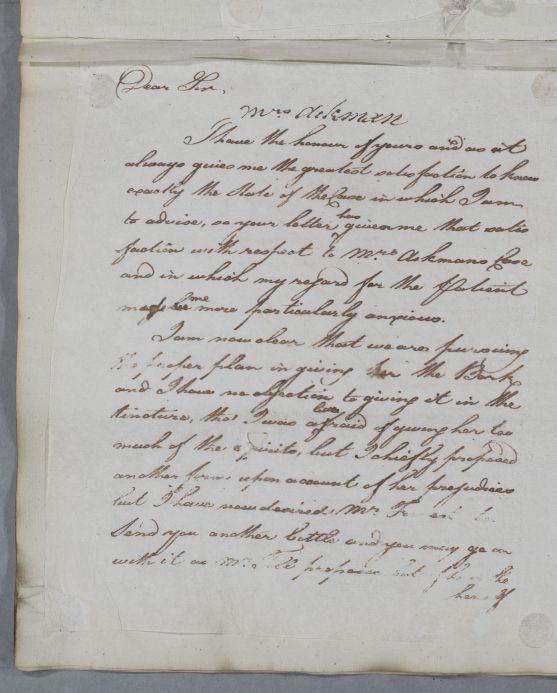 Dear Sir,
Mrs. Ackman
I have the honour of yours and as it
always gives me the greatest satisfaction to know
exactly the State of the Case in which I am
to advise, so your letter has given me that satis
faction with respect to Mrs Ackmans Case
and in which my regard for the Patient
made me more particularly anxious.
I am now clear that we are pursuing
the proper plan in giving her the Bark
and I have no objection to giving it in the
tincture, tho' I was even afraid of giving her too
much of the spirits, but I chiefly proposed
another form upon account of her prejudices
but I have now desired Mr
Send you another bottle and you may go on
with it as Mr proposes but if the
her of